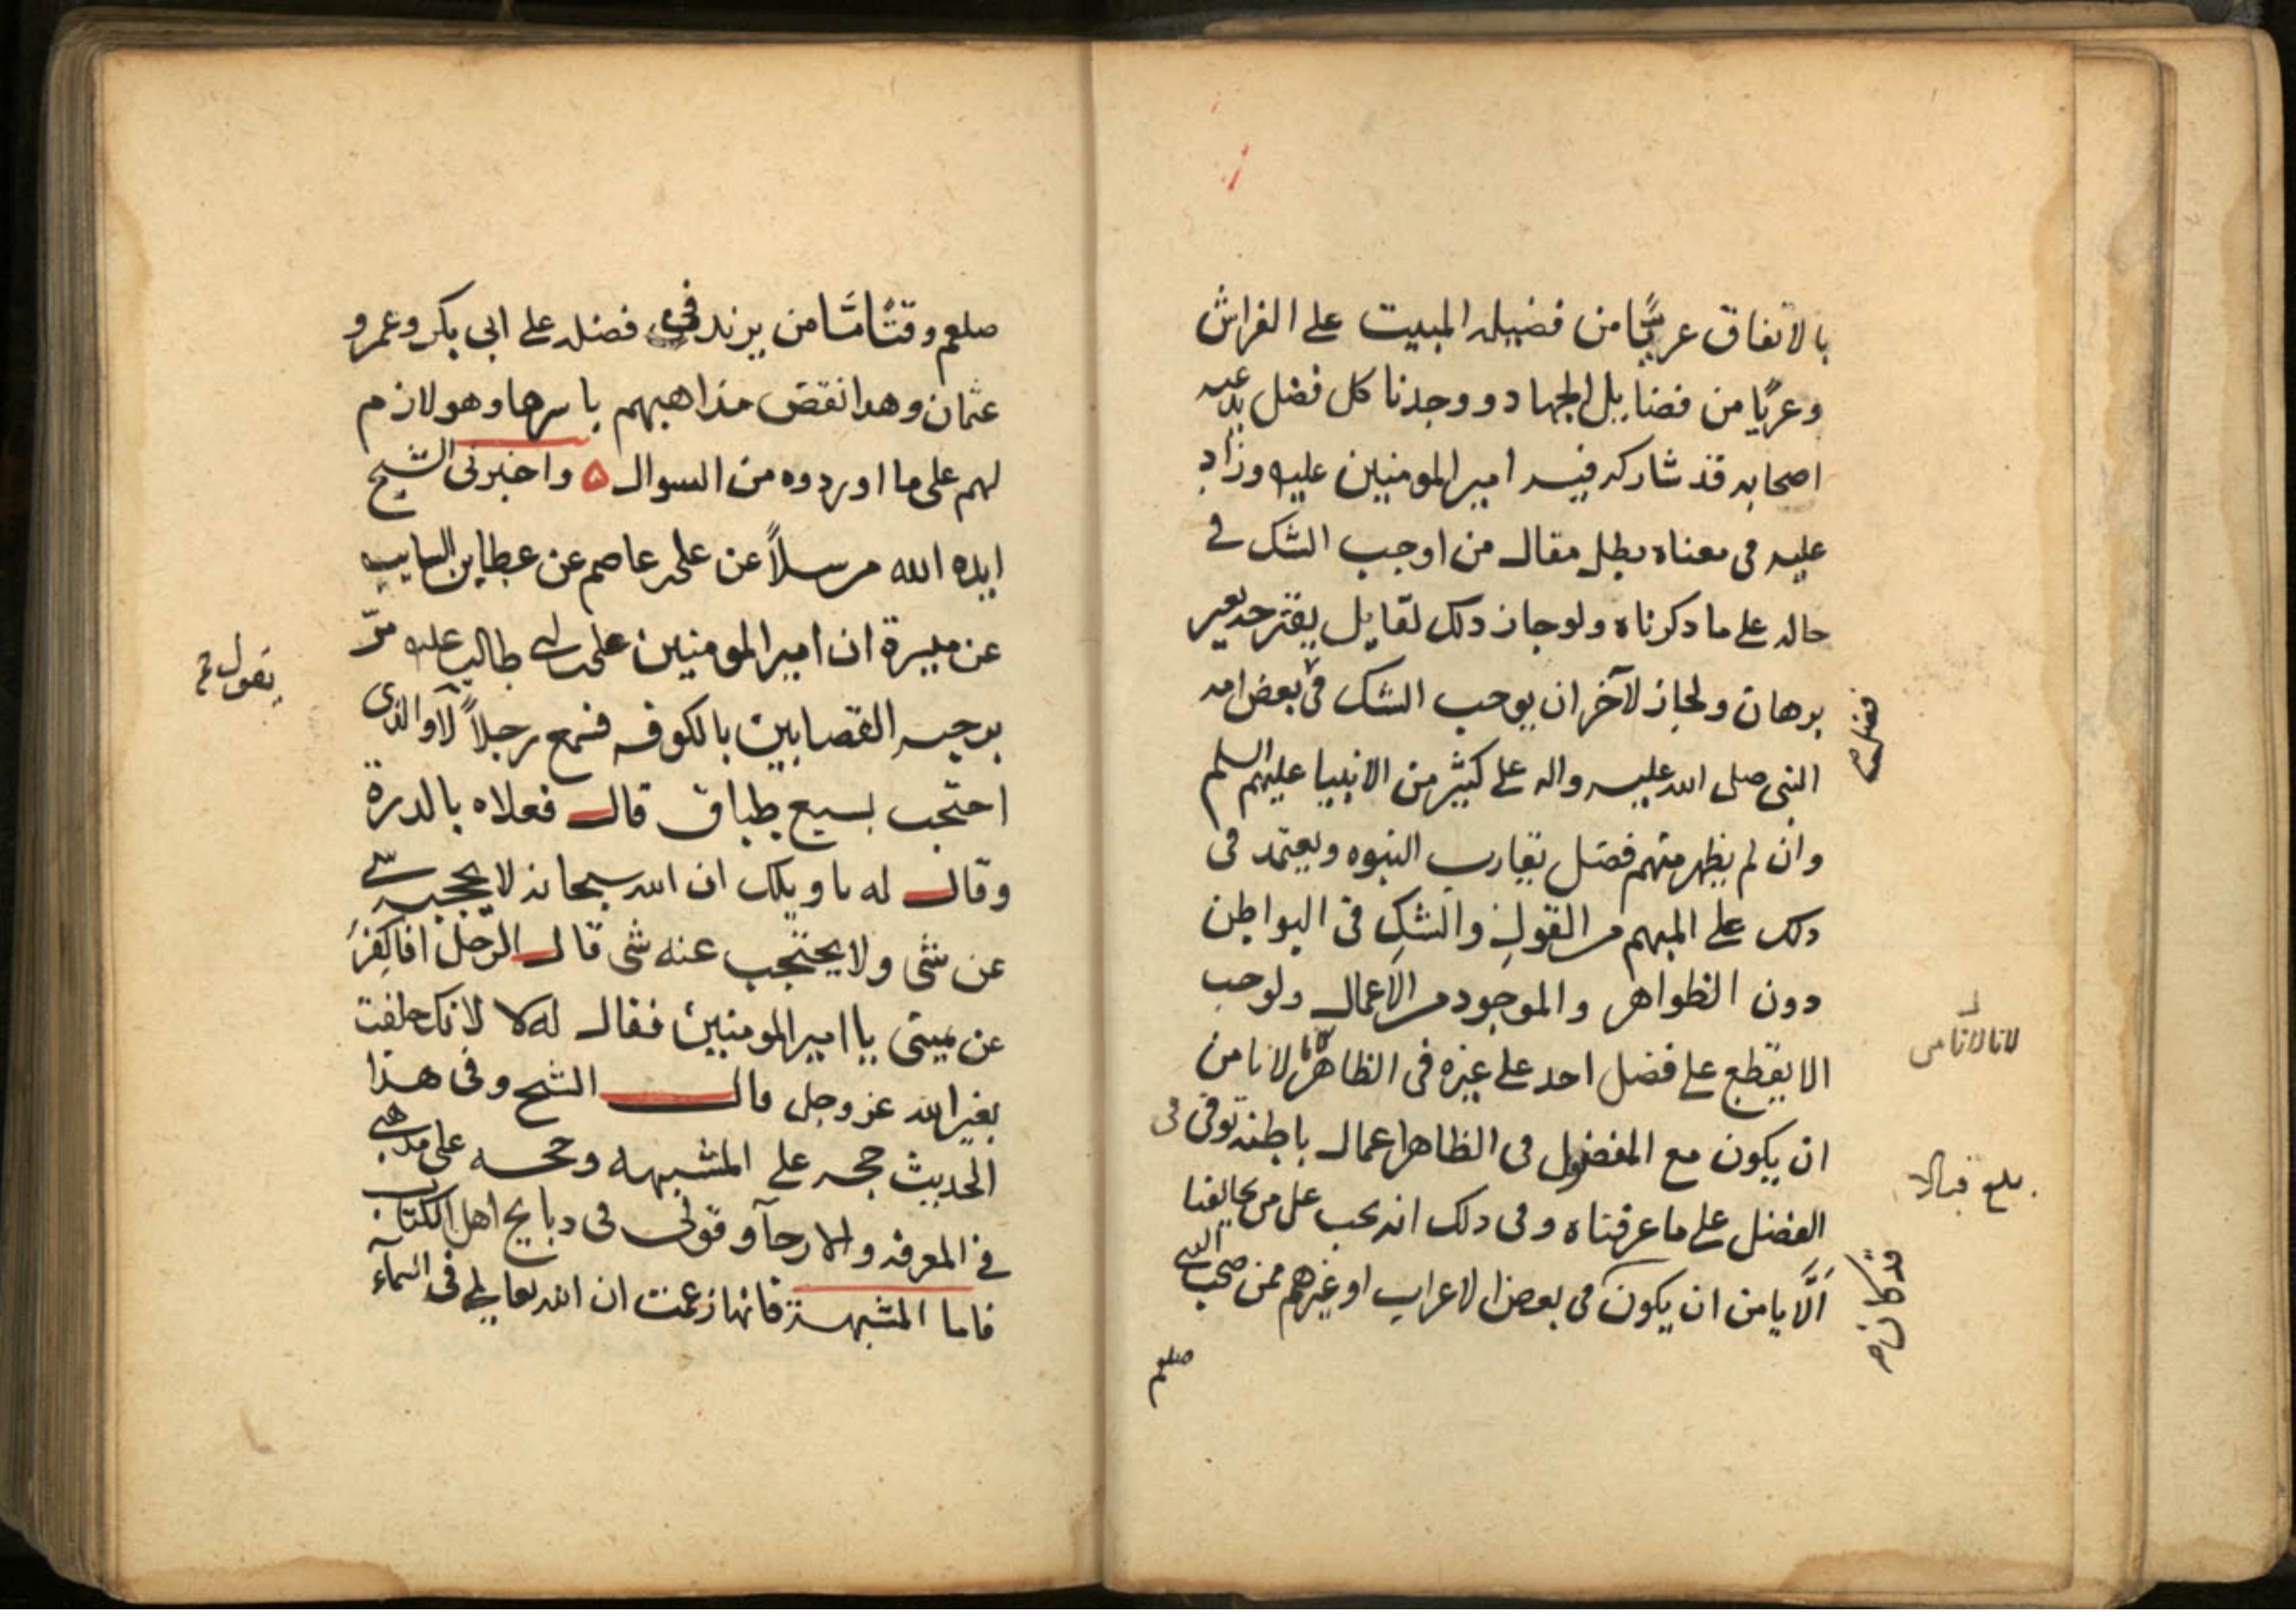 بالاتفاق عريًّا من فضيله المبيت على الفراش
وعريًا من فضايل الجهاد ووجدنا كل فضل يدعيه
اصحابه قد شاركه فيه امير المومنين عليه وزاد
عليه فى معناه بطل مقال من اوجب الشك فى
حاله على ما دكرناه ولو جاز دلك لقايل يقترحه بغير
برهان ولجاز لآخر ان يوجب الشك فى بعض امه
فضل
النبى صلى الله عليه واله على كثير من الانبيا عليهم السلم
وان لم يظهر منهم فضل يقارب النبوه ويعتمد فى
دلك على المبهم من القول والشك فى البواطن
دون الظواهر والموجود من الاعمال ولوجب
الا يقطع على فضل احد على غيره فى الظاهر لانا من
لانا لانامن
ان يكون مع المفضول فى الظاهر اعمال باطنه توفى فى
الفضل على ما عرفناه وفى دلك انه يجب على من يخالفنا
الَّا يامن ان يكون فى بعض الاعراب او غيرهم ممن صحب النبى
قد كان
صلعم
صلعم وقتًا ما من يزيد فى فضله على ابى بكر وعمر و
عثمان وهدا نقض مذاهبهم باسرها وهو لازم
لهم على ما اوردوه من السوال ۵ واخبرنى الشيخ
ايده الله مرسلاً عن على عاصم عن عطا بن السايب
عن ميسرة ان امير المومنين على بن ابى طالب عليه مرّ
بوجبه القصابين بالكوفه فسمع رجلاً لا والذى
يقول
احتجب بسبع طباق قال فعلاه بالدرة
وقال له يا ويلك ان الله سبحانه لا يحجبه شى
عن شى ولا يحتجب عنه شى قال الرجل افاكفر
عن يمينى يا امير المومنين فقال له لا لانك حلفت
بغير الله عز وجل قال الشيخ وفى هذا
الحديث حجه على المشبهه وحجه على مذهبى
فى المعرفه والارجآ وقولى فى دبايح اهل الكتاب
فاما المشبهة فانها زعمت ان الله تعالى فى السمآء